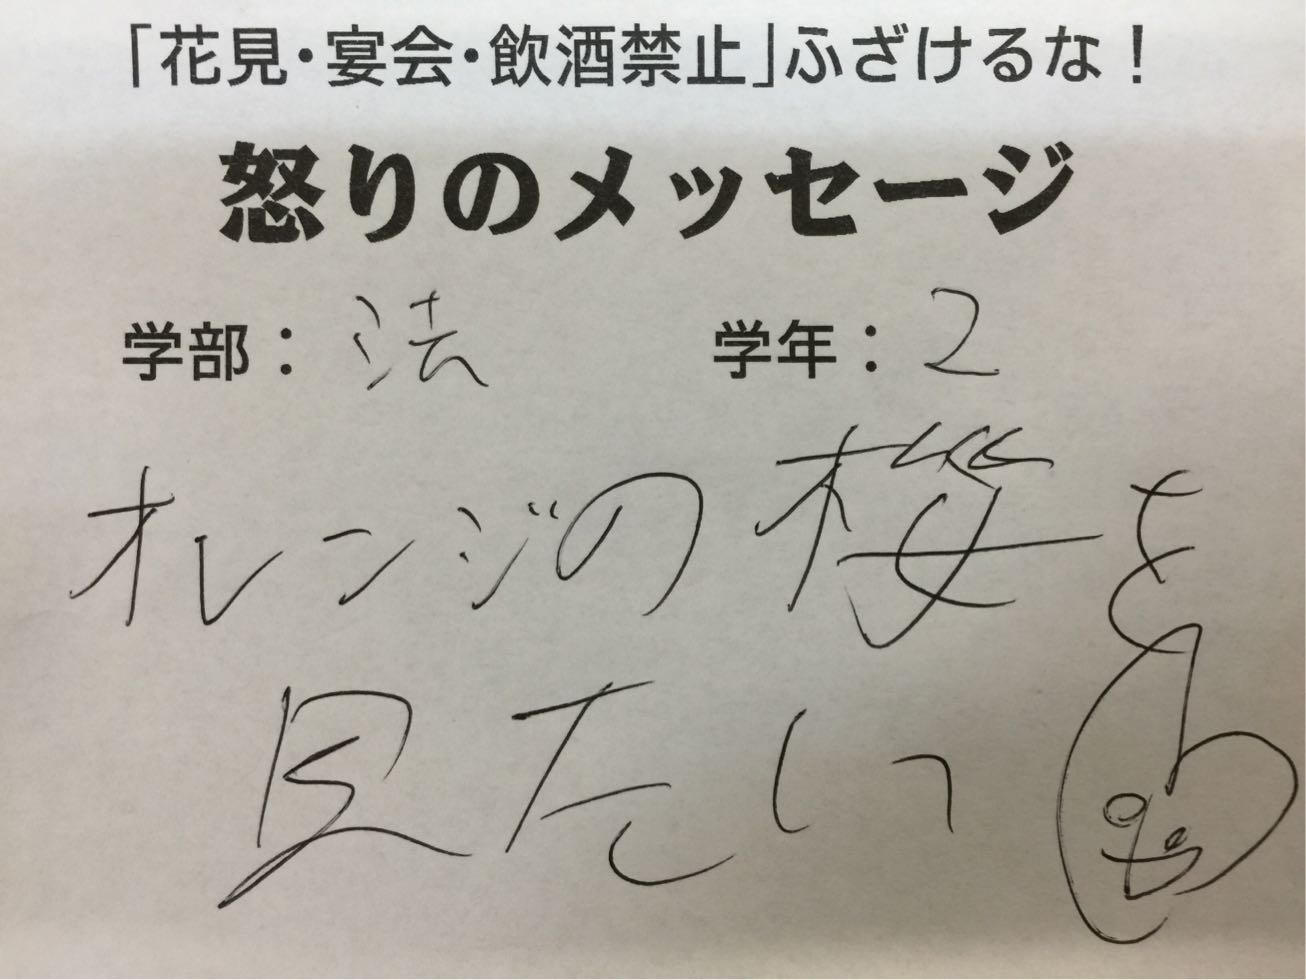 「花見・宴会・飲酒禁止」ふざけるな！
怒りのメッセージ
学部：法 学年：2
オレンジの桜を
見たい